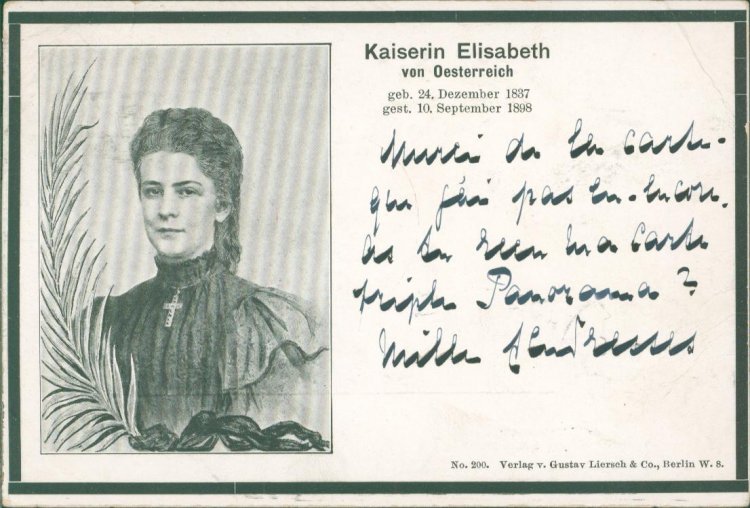 Kaiserin Elisabeth
von Oesterreich
geb. 24. Dezember 1837
gest. 10. September 1898
Merci de ta carte
que j'ai pas
as tu ma carte
triple Panorama ?
Mille tendresses
No. 200. Verlag v. Gustav Liersch & Co., Berlin W. 8.